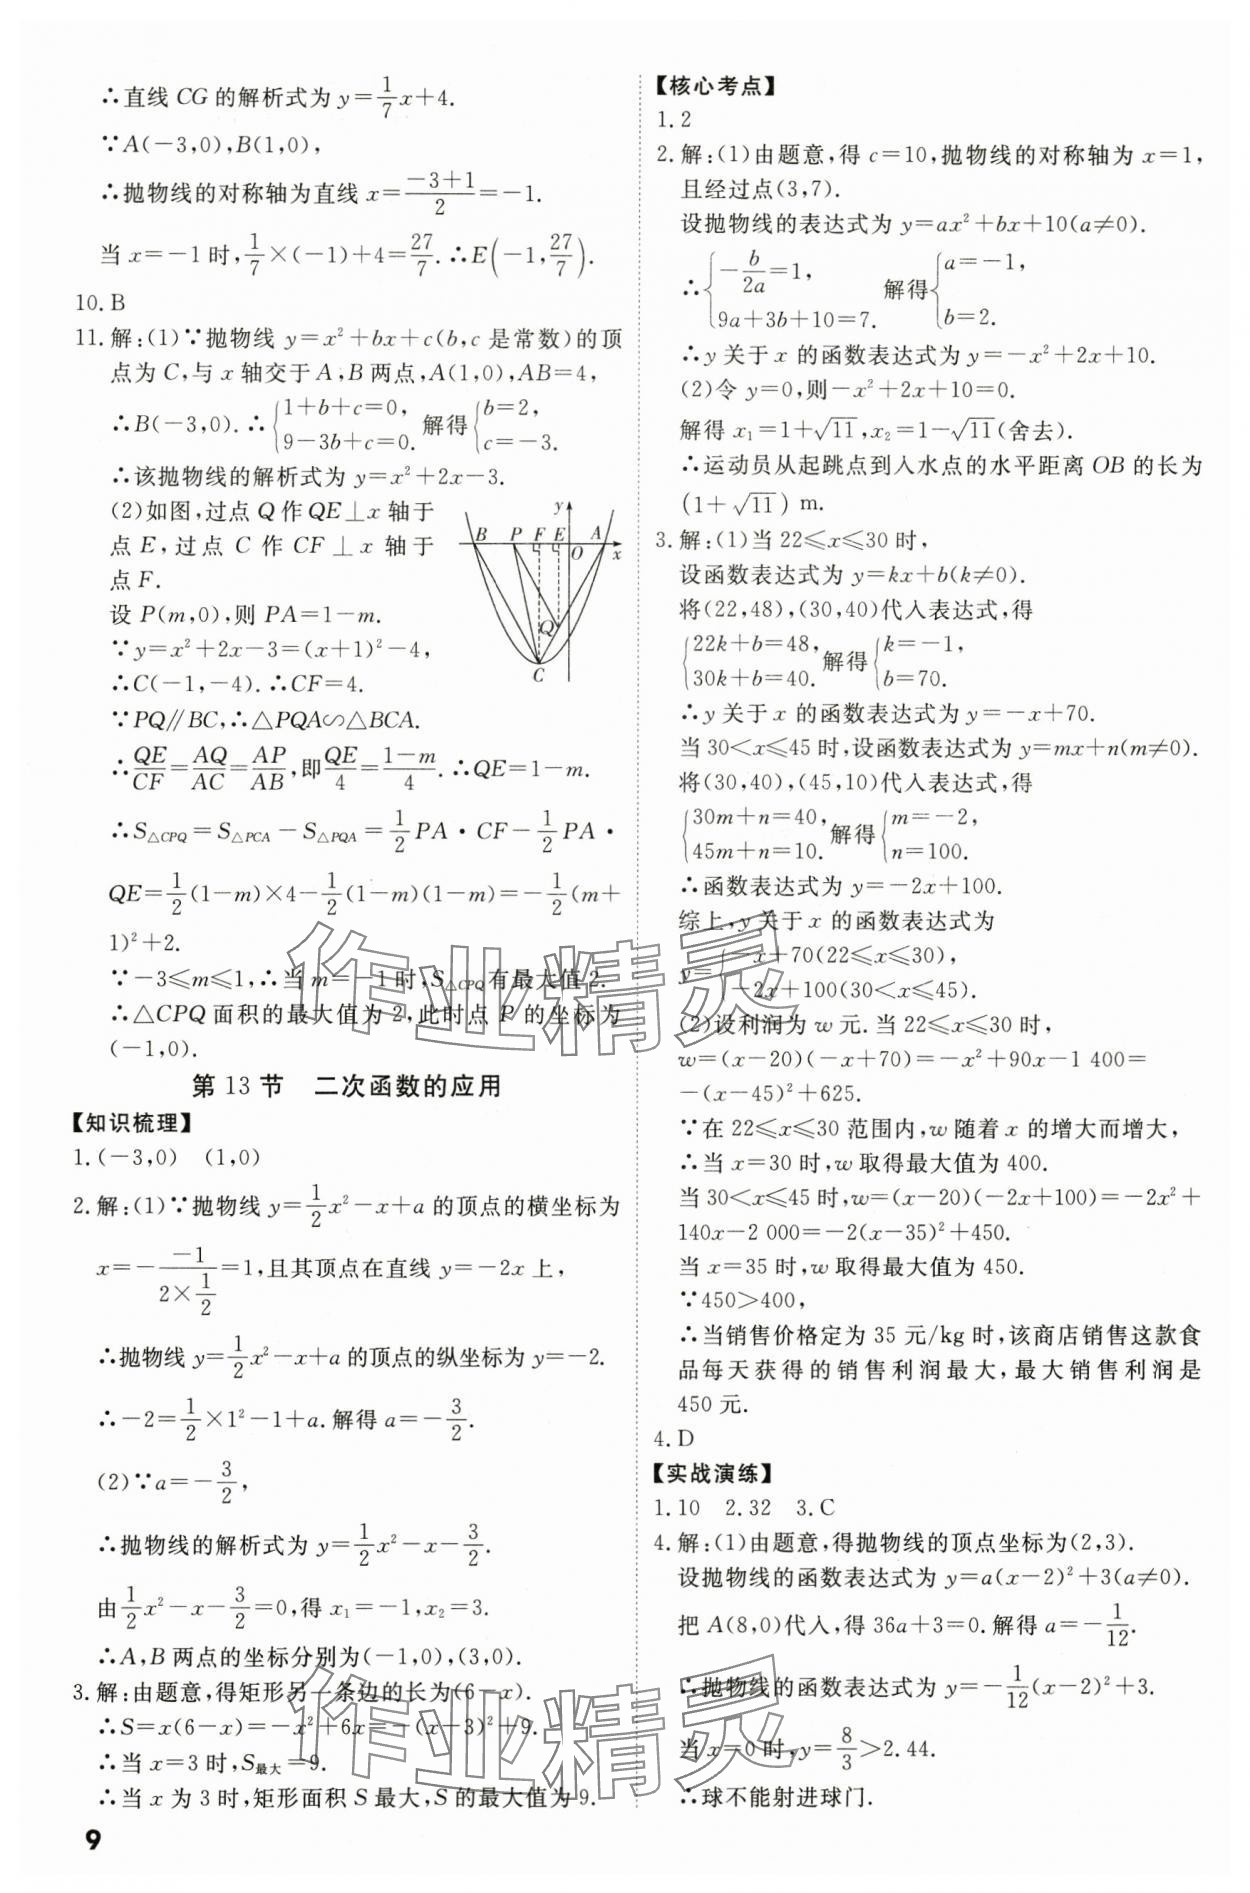 ∴直线 CG 的解析式为 y=1/7x+4.
∵A(-3,0),B(1,0),
∴抛物线的对称轴为直线 x=(-3+1)/2=-1.
当 x=-1 时,1/7×(-1)+4=27/7.∴E(-1,27/7).
10.B
11.解:(1)∵抛物线 y=x²+bx+c(b,c 是常数)的顶
点为 C,与 x 轴交于 A,B 两点,A(1,0),AB=4,
∴B(-3,0).∴{1+b+c=0, 9-3b+c=0. 解得{b=2, c=-3.
∴该抛物线的解析式为 y=x²+2x-3.
(2)如图,过点 Q 作 QE⊥x 轴于
点 E,过点 C 作 CF⊥x 轴于
点 F.
设 P(m,0),则 PA=1-m.
∵y=x²+2x-3=(x+1)²-4,
∴C(-1,-4).∴CF=4.
∵PQ∥BC,∴△PQA∽△BCA.
∴QE/CF=AQ/AC=AP/AB,即QE/4=(1-m)/4.∴QE=1-m.
∴S△CPQ=S△PCA-S△PQA=1/2PA·CF-1/2PA·
QE=1/2(1-m)×4-1/2(1-m)(1-m)=-1/2(m+
1)²+2.
∵-3≤m≤1,∴当 m=-1 时,S△CPQ有最大值 2.
∴△CPQ 面积的最大值为 2,此时点 P 的坐标为
(-1,0).
y
B P F E O A x
Q
C
第 13 节 二次函数的应用
【知识梳理】
1.(-3,0) (1,0)
2.解:(1)∵抛物线 y=1/2x²-x+a 的顶点的横坐标为
x=-(-1)/(2×1/2)=1,且其顶点在直线 y=-2x 上,
∴抛物线 y=1/2x²-x+a 的顶点的纵坐标为 y=-2.
∴-2=1/2×1²-1+a.解得 a=-3/2.
(2)∵a=-3/2,
∴抛物线的解析式为 y=1/2x²-x-3/2.
由1/2x²-x-3/2=0,得 x₁=-1,x₂=3.
∴A,B 两点的坐标分别为(-1,0),(3,0).
3.解:由题意,得矩形另一条边的长为(6-x).
∴S=x(6-x)=-x²+6x=-(x+3)²+9.
∴当 x=3 时,S最大=9.
∴当 x 为 3 时,矩形面积 S 最大,S 的最大值为 9.
9
【核心考点】
1.2
2.解:(1)由题意,得 c=10,抛物线的对称轴为 x=1,
且经过点(3,7).
设抛物线的表达式为 y=ax²+bx+10(a≠0).
∴{-b/2a=1, 9a+3b+10=7. 解得{a=-1, b=2.
∴y 关于 x 的函数表达式为 y=-x²+2x+10.
(2)令 y=0,则-x²+2x+10=0.
解得 x₁=1+√11,x₂=1-√11(舍去).
∴运动员从起跳点到入水点的水平距离 OB 的长为
(1+√11) m.
3.解:(1)当 22≤x≤30 时,
设函数表达式为 y=kx+b(k≠0).
将(22,48),(30,40)代入表达式,得
{22k+b=48, 30k+b=40. 解得{k=-1, b=70.
∴y 关于 x 的函数表达式为 y=-x+70.
当 30<x≤45 时,设函数表达式为 y=mx+n(m≠0).
将(30,40),(45,10)代入表达式,得
{30m+n=40, 45m+n=10. 解得{m=-2, n=100.
∴函数表达式为 y=-2x+100.
综上,y 关于 x 的函数表达式为
y={-x+70(22≤x≤30), -2x+100(30<x≤45).
(2)设利润为 w 元.当 22≤x≤30 时,
w=(x-20)(-x+70)=-x²+90x-1 400=
-(x-45)²+625.
∵在 22≤x≤30 范围内,w 随着 x 的增大而增大,
∴当 x=30 时,w 取得最大值为 400.
当 30<x≤45 时,w=(x-20)(-2x+100)=-2x²+
140x-2 000=-2(x-35)²+450.
当 x=35 时,w 取得最大值为 450.
∵450>400,
∴当销售价格定为 35 元/kg 时,该商店销售这款食
品每天获得的销售利润最大,最大销售利润是
450 元.
4.D
【实战演练】
1.10 2.32 3.C
4.解:(1)由题意,得抛物线的顶点坐标为(2,3).
设抛物线的函数表达式为 y=a(x-2)²+3(a≠0).
把 A(8,0)代入,得 36a+3=0.解得 a=-1/12.
∴抛物线的函数表达式为 y=-1/12(x-2)²+3.
当 x=0 时,y=8/3>2.44.
∴球不能射进球门.
作业精灵
作业精灵